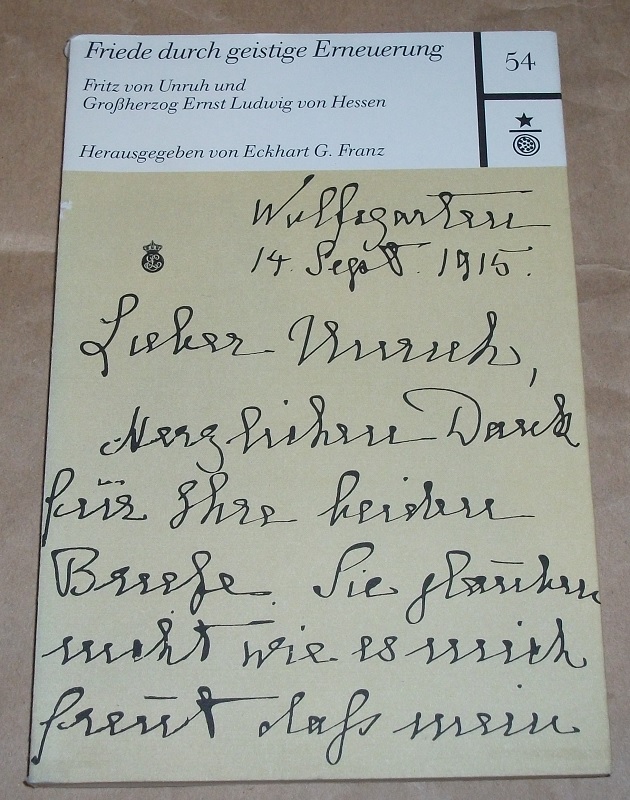 Friede durch geistige Erneuerung
54
Fritz von Unruh und
Großherzog Ernst Ludwig von Hessen
Herausgegeben von Eckhart G. Franz
Wolfsgarten
14. Sept. 1915.
Lieber Unruh,
Herzlichen Dank
für Ihre beiden
Briefe. Sie glauben
nicht wie es mich
freut daß mein